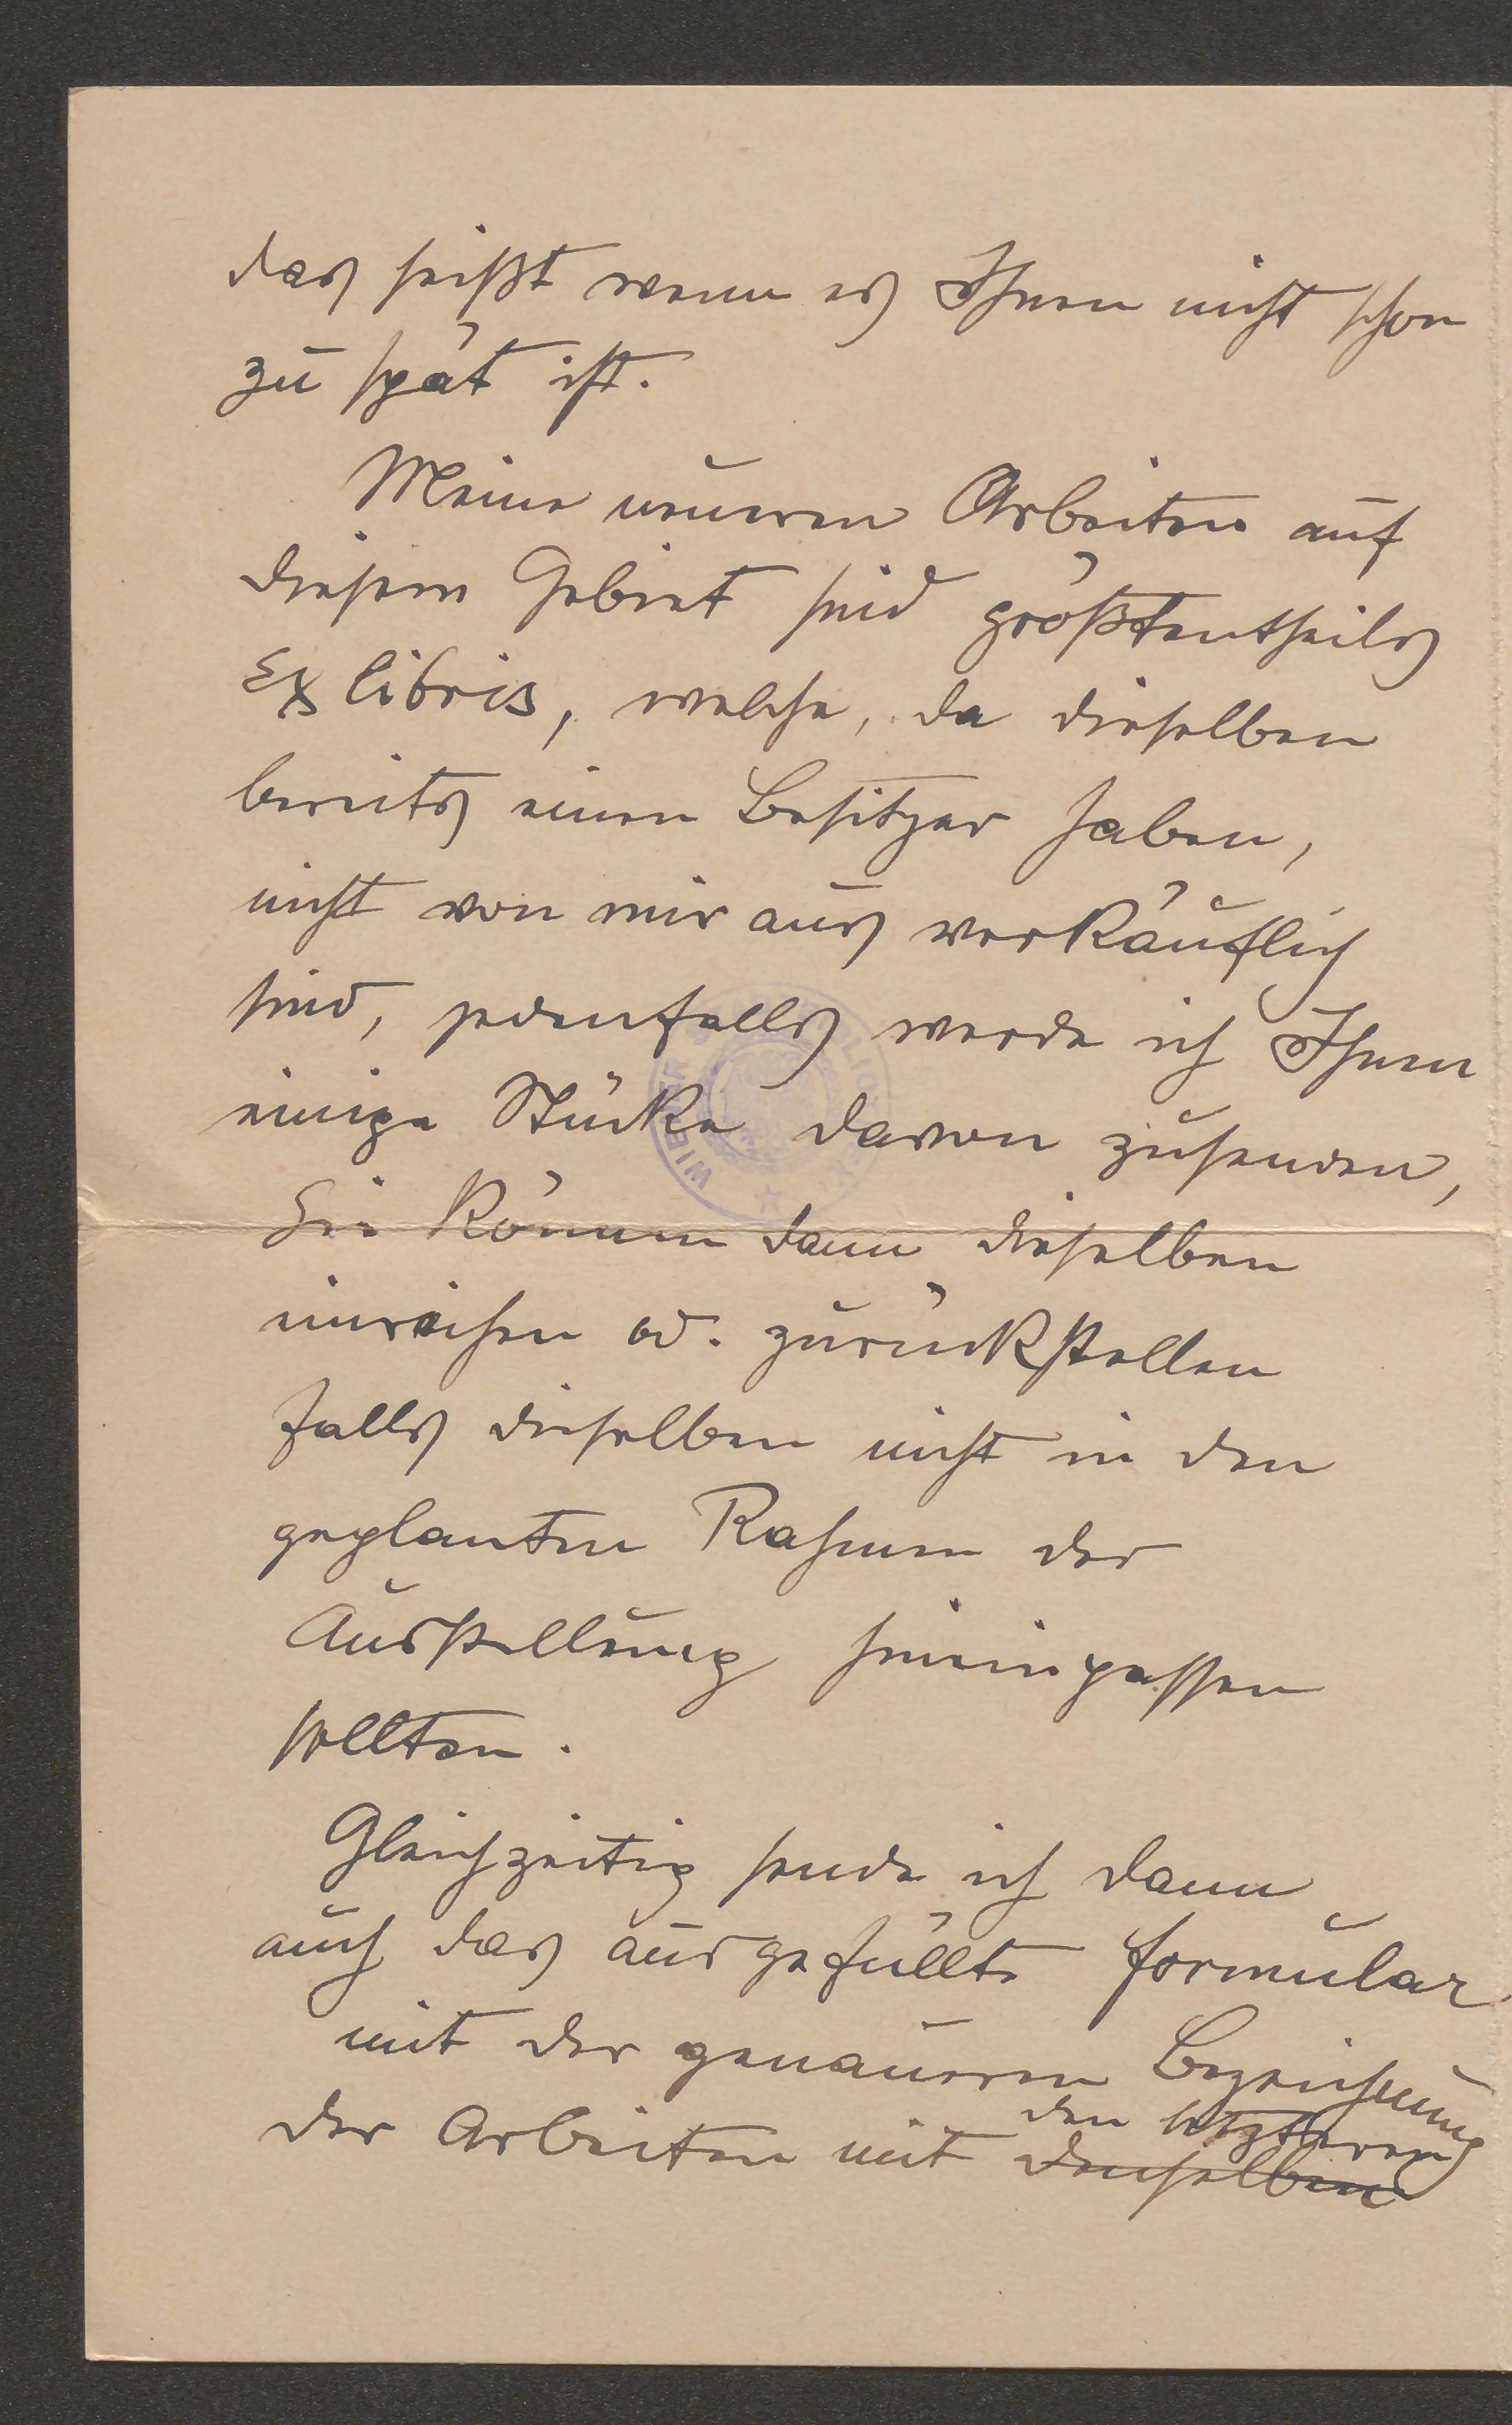 das heißt wenn es Ihnen nicht schon
zu spät ist.
Meine neueren Arbeiten auf
diesem Gebiet sind größtentheils
Ex libris, welche, da dieselben
bereits einen Besitzer haben,
nicht von mir aus verkäuflich
sind, jedenfalls werde ich Ihnen
einige Stücke davon zusenden,
Sie können dann dieselben
einreihen od. zurückstellen
falls dieselben nicht in den
geplanten Rahmen der
Ausstellung hineinpassen
sollten.
Gleichzeitig sende ich dann
auch das ausgefüllte Formular
mit der genaueren Bezeichnung
den letzteren
der Arbeiten mit denselben
WIENER